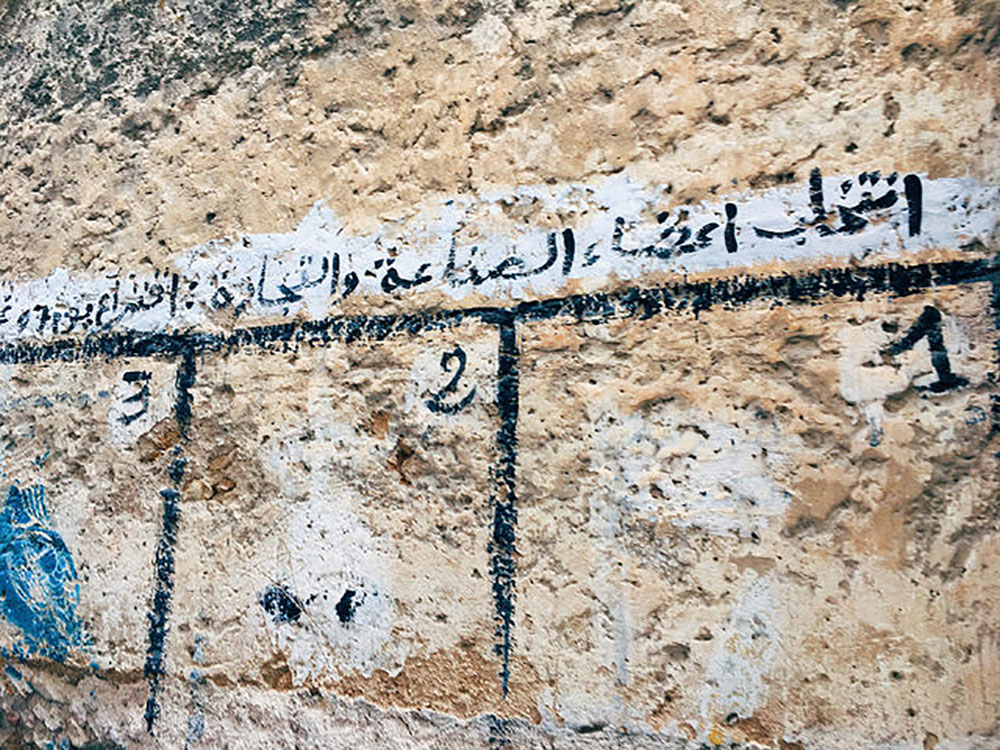 انتخاب اعضاء الصناعة والتجارة : اقتراع
1 2 3